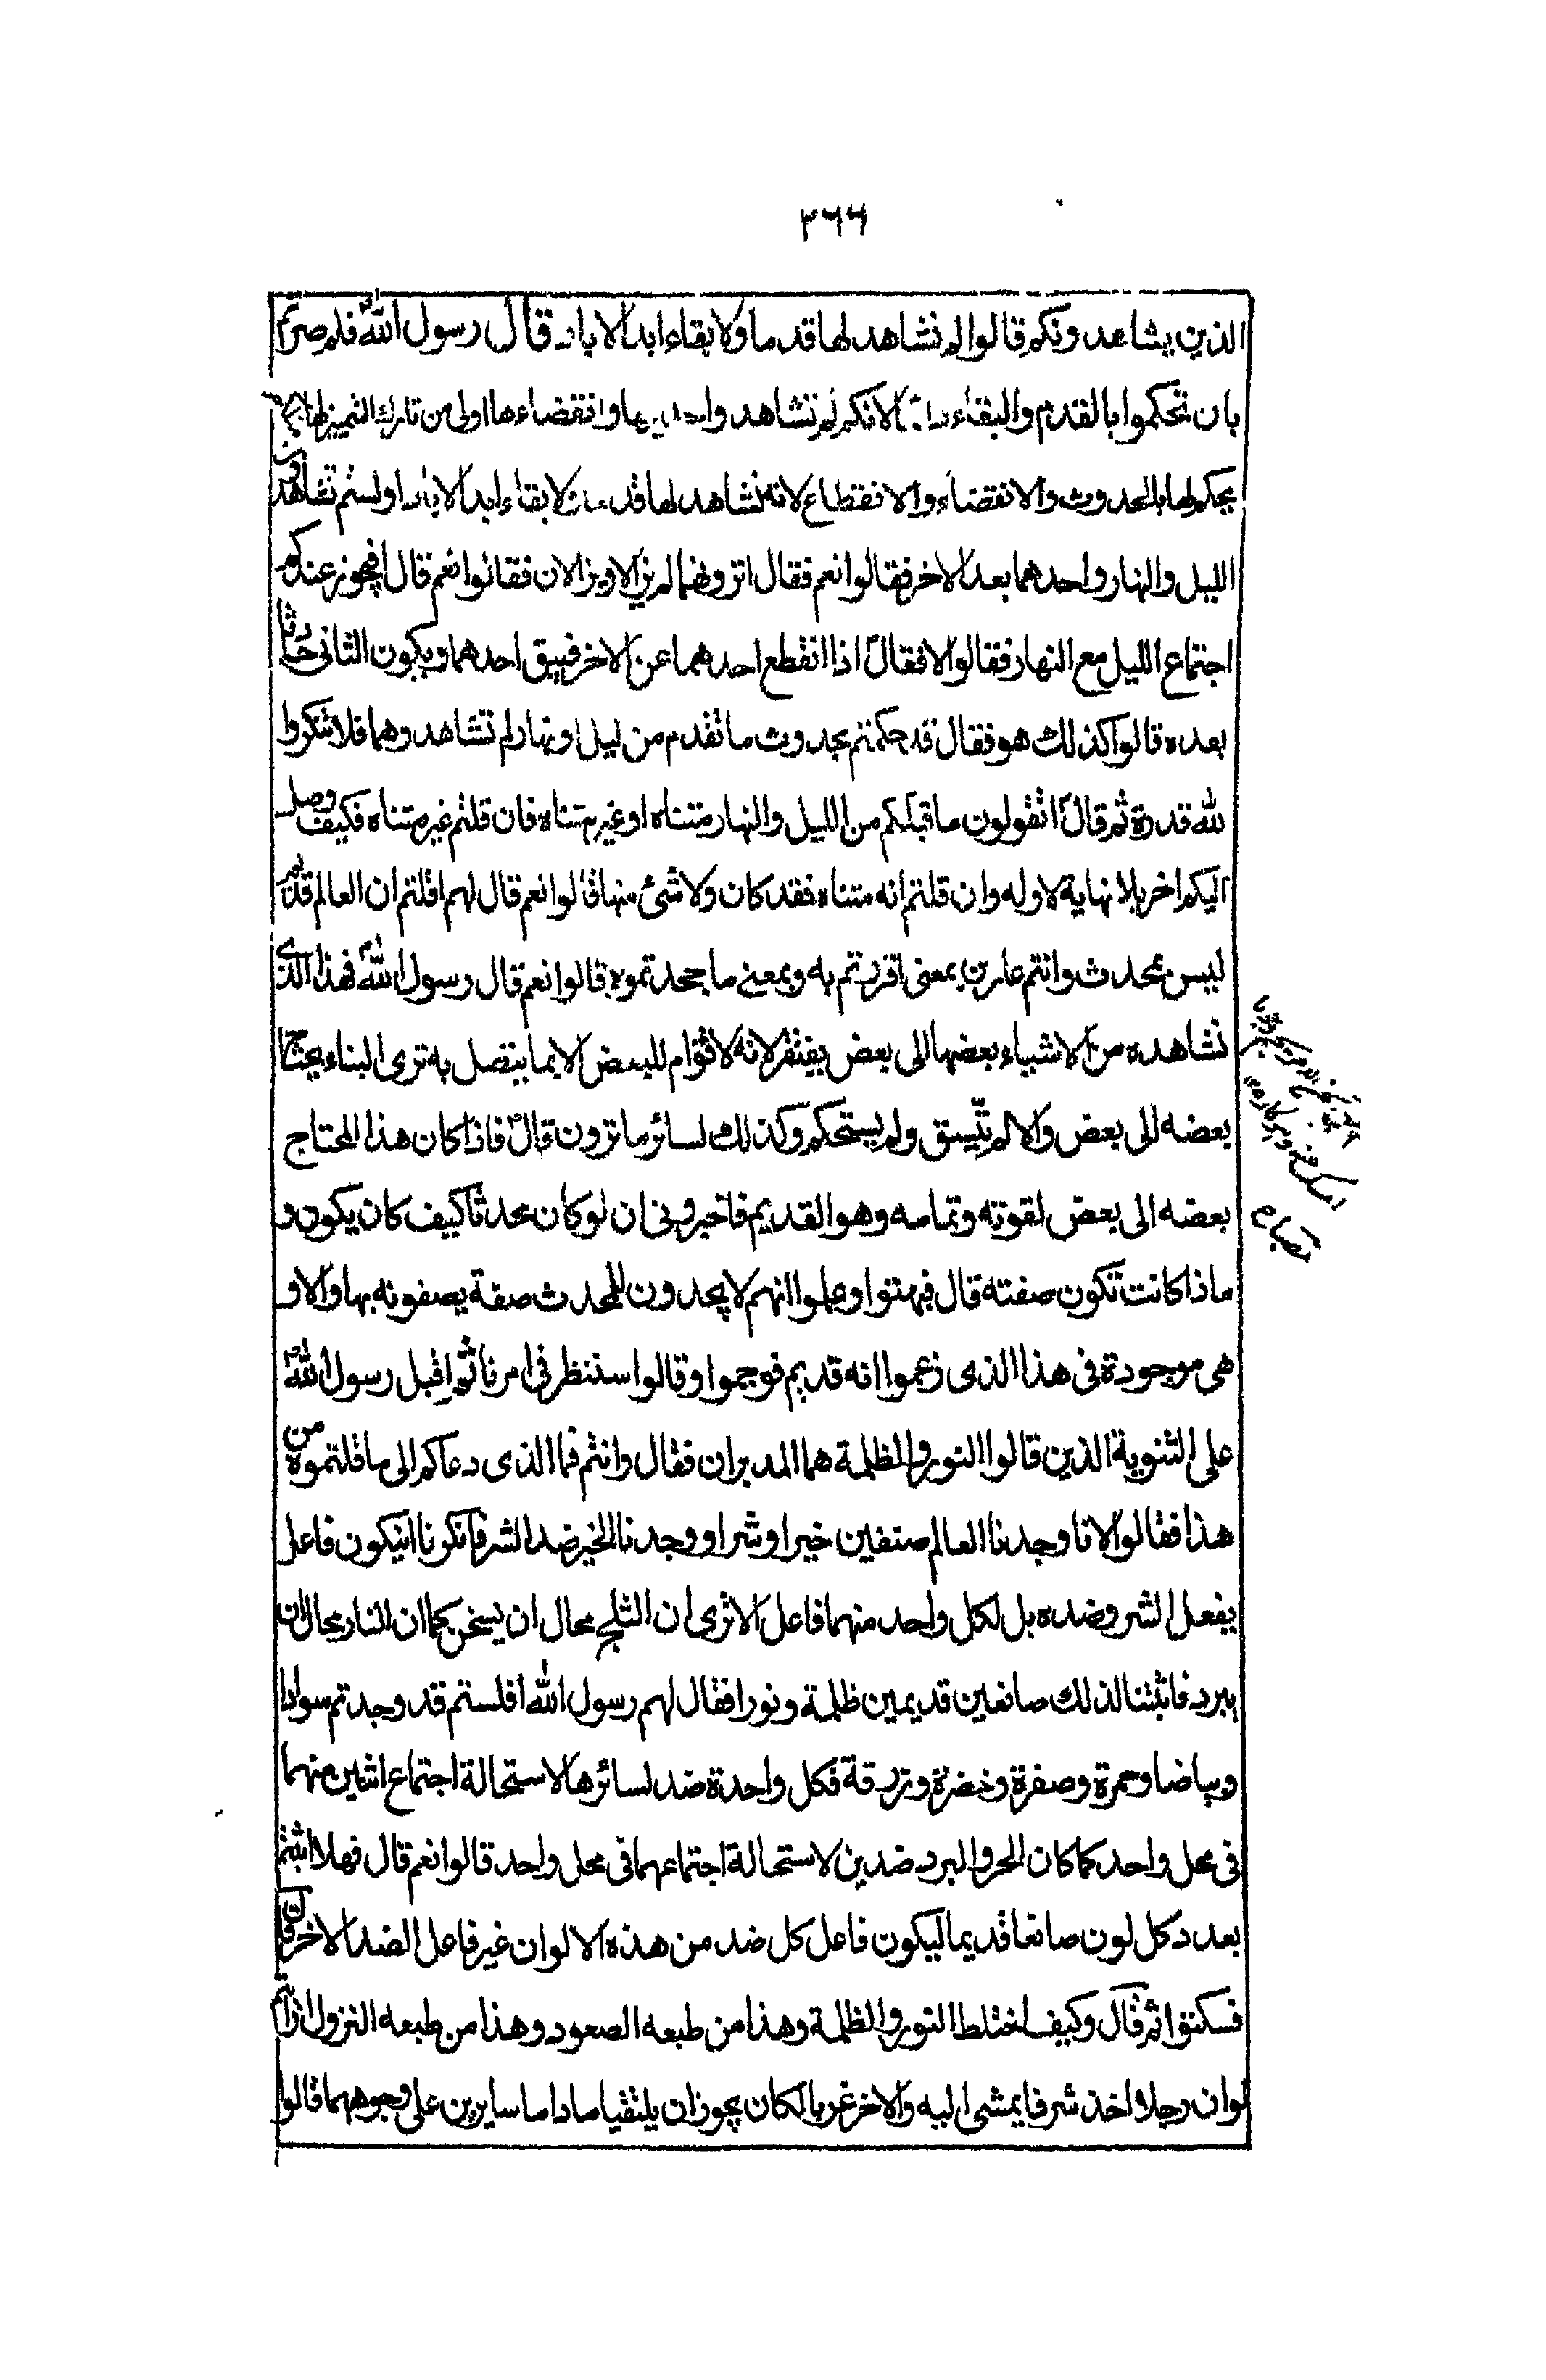 ٣٦٦
الذين يشاهدونكم قالوا لم نشاهد لها قدما ولا بقاء ابد الاباد قال رسول الله فلم صرتم
بان تحكموا بالقدم والبقاء دائما لانكم لم تشاهدوا حدوثها وانقضاءها اولى من تارك التميز لها
يحكم لها بالحدوث والانقضاء والانقطاع لانه لم يشاهد لها قدما ولا بقاء ابد الاباد اولستم تشاهدون
الليل والنهار واحدهما بعد الاخر فقالوا نعم فقال اترونهما لم يزالا ويزالان فقالوا نعم قال افيجوز عندكم
اجتماع الليل مع النهار فقالوا لا فقال اذا انقطع احدهما عن الاخر فيبق احدهما ويكون الثانى حادثا
بعده قالوا كذلك هو فقال قد حكمتم بحدوث ما تقدم من ليل او نهار لم تشاهدوهما فلا تنكروا
لله قدرة ثم قال اتقولون ما قبلكم من الليل والنهار متناه او غير متناه فان قلتم غير متناه فكيف وصل
اليكم اخر بلا نهاية لاوله وان قلتم انه متناه فقد كان ولا شئ منها قالوا نعم قال لهم اقلتم ان العالم قديم
ليس بمحدث وانتم عارفين بمعنى ما اقررتم به وبمعنى ما جحدتموه قالوا نعم قال رسول الله فهذا الذى
نشاهده من الاشياء بعضها الى بعض يفتقر لانه لا قوام للبعض الا بما يتصل به ترى البناء يحتاج
بعضه الى بعض والا لم يتسق ولم يستحكم وكذلك لسائر ما ترون قال فاذا كان هذا المحتاج
بعضه الى بعض لقوته وتمامه وهو القديم فاخبرونى ان لو كان محدثا كيف كان يكون و
ماذا كانت تكون صفته قال فبهتوا وعلموا انهم لا يجدون للمحدث صفة يصفونه بها الا و
هى موجودة فى هذا الذى زعموا انه قديم فوجموا وقالوا سننظر فى امرنا ثم اقبل رسول الله
على الثنوية الذين قالوا النور والظلمة هما المدبران فقال وانتم فما الذى دعاكم الى ما قلتموه من
هذا فقالوا لانا وجدنا العالم صنفين خيرا وشرا ووجدنا الخير ضد الشر فانكرنا ان يكون فاعل
يفعل الشر وضده بل لكل واحد منهما فاعل الا ترى ان الثلج محال ان يسخن كما ان النار محال ان
يبرد فاثبتنا لذلك صانعين قديمين ظلمة ونورا فقال لهم رسول الله افلستم قد وجدتم سوادا
وبياضا وحمرة وصفرة وخضرة وزرقة فكل واحدة ضد لسائرها لاستحالة اجتماع اثنين منهما
فى محل واحد كما كان الحر والبرد ضدين لاستحالة اجتماعهما فى محل واحد قالوا نعم قال فهلا اثبتم
بعدد كل لون صانعا قديما ليكون فاعل كل ضد من هذه الالوان غير فاعل الضد الاخر قال
فسكتوا ثم قال وكيف اختلط النور والظلمة وهذا من طبعه الصعود وهذا من طبعه النزول ارايتم
لو ان رجلا اخذ شرقا يمشى اليه والاخر غربا اكان يجوز ان يلتقيا ما داما سايرين على وجوههما قالوا